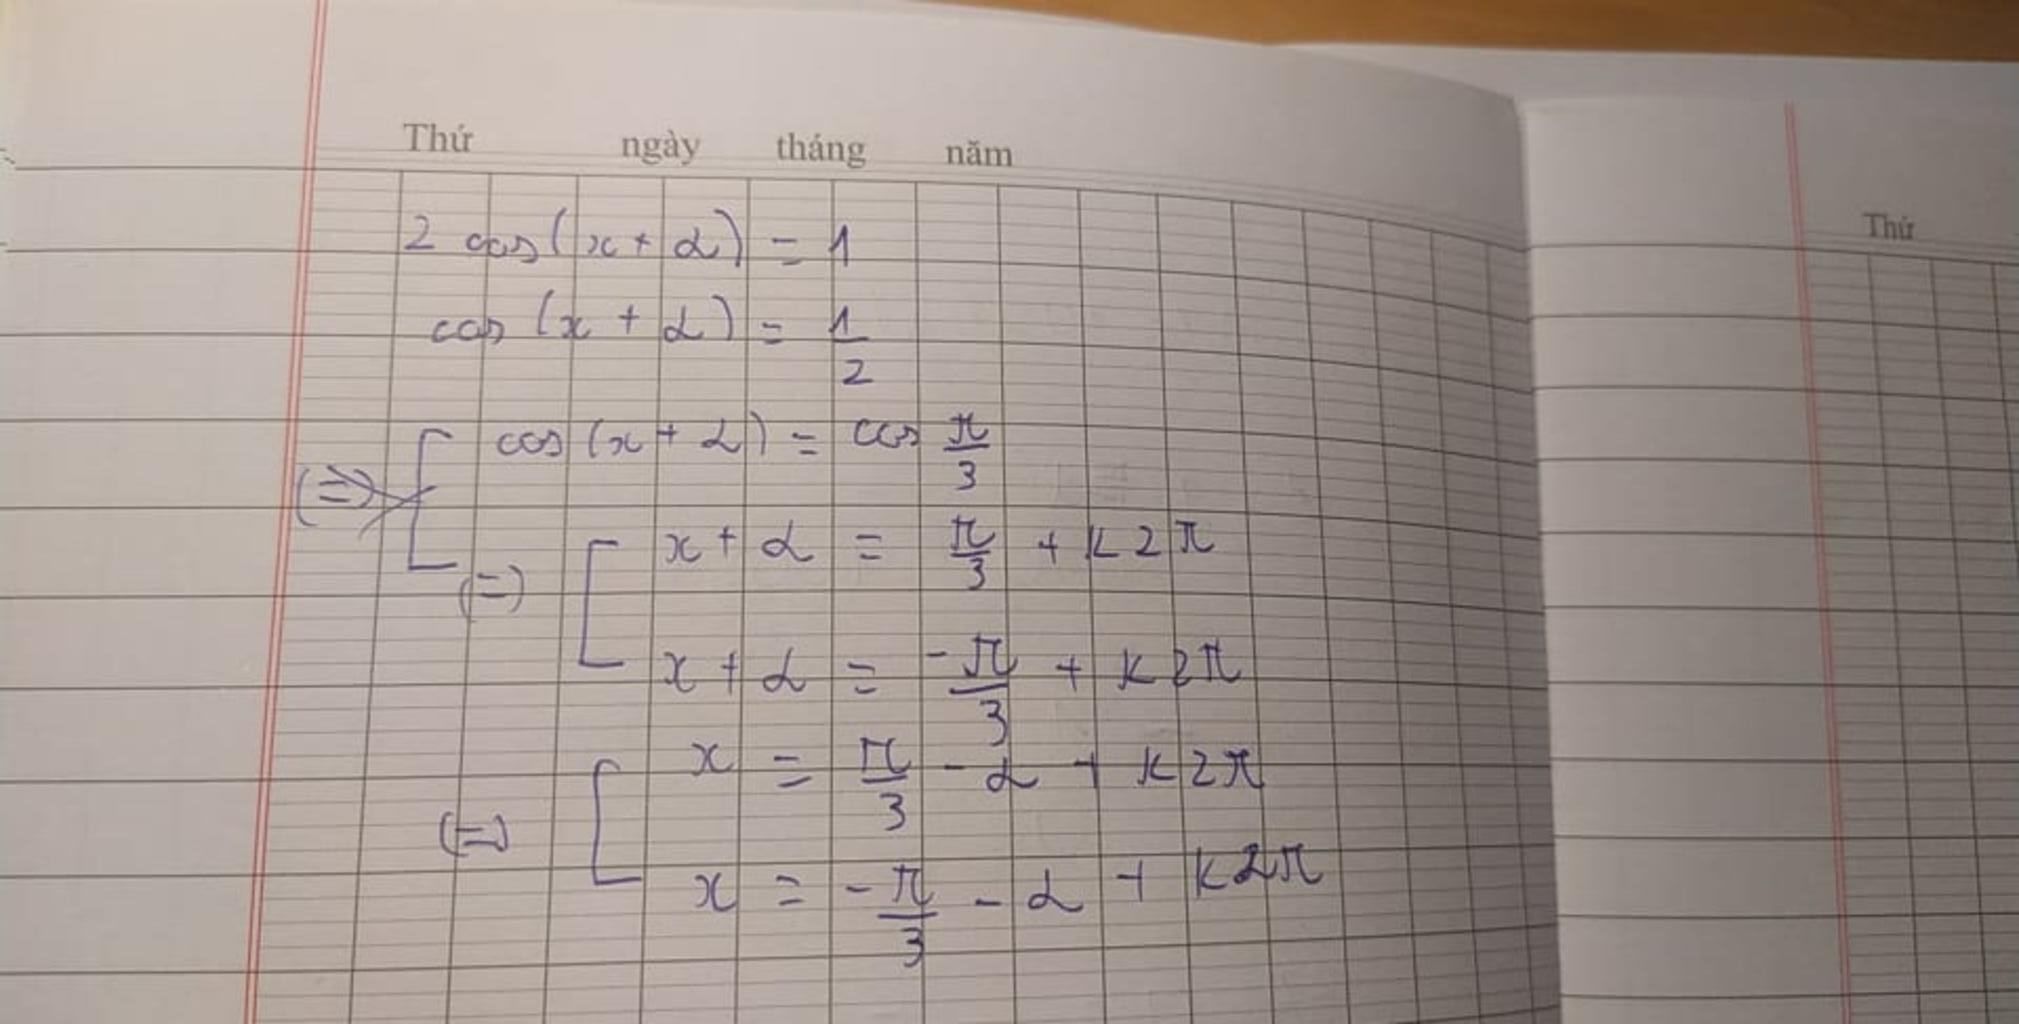 Thứ ngày tháng năm
Thứ
2 cos(x + α) = 1
cos (x + α) = 1/2
cos (x + α) = cos π/3
(=) x + α = π/3 + k2π
x + α = -π/3 + k2π
(=) x = π/3 - α + k2π
x = -π/3 - α + k2π